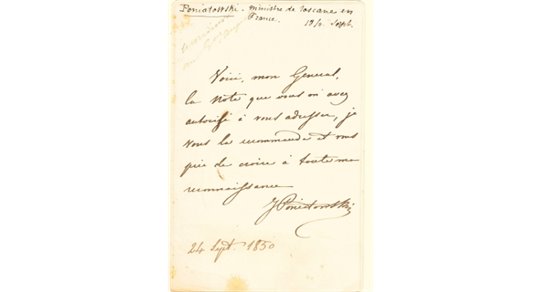 Poniatowski - ministre de Toscane en
France. 19/ Sept.
Voici, mon General,
la Note que vous m'avez
autorisé à vous adresser, je
vous la recommande et vous
prie de croire à toute ma
reconnaissance
J Poniatowski
24 Sept. 1850